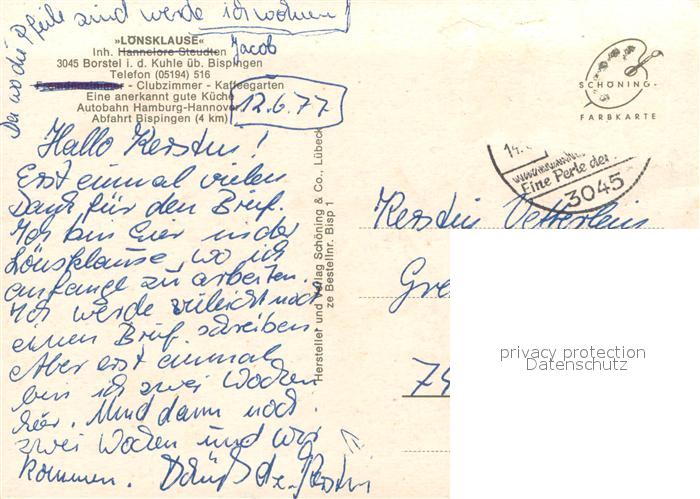 Da wo die Pfeile sind werde ich wohnen!
»LÖNSKLAUSE«
Inh. Hannelore Steudten
Jacob
3045 Borstel i. d. Kuhle üb. Bispingen
Telefon (05194) 516
- Clubzimmer - Kaffeegarten
Eine anerkannt gute Küche
Autobahn Hamburg-Hannover
Abfahrt Bispingen (4 km)
12.6.77
SCHÖNING
FARBKARTE
14.
Eine Perle der
3045
Hallo Kerstin!
Erst einmal vielen
Dank für den Brief.
Ich bin hier in der
Lönsklause wo ich
anfange zu arbeiten.
Ich werde vileicht noch
einen Brief schreiben.
Aber erst einmal
bin ich zwei Wochen
hier. Und dann noch
zwei Wochen und wir
kommen.
Hersteller und Verlag Schöning & Co., Lübeck
ze Bestellnr. Bisp 1
Kerstin
Gre
74
privacy protection
Datenschutz